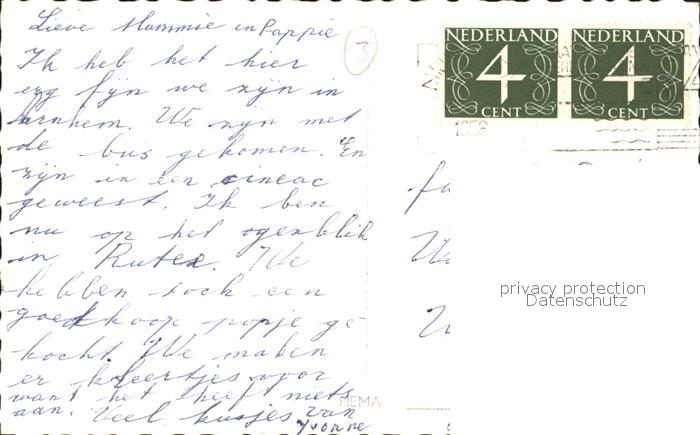 Lieve Mammie en Pappie
Ik heb het hier
erg fijn we zijn in
Arnhem. We zijn met
de bus gekomen. En
zijn in een cineac
geweest. Ik ben
nu op het ogenblik
in Rutex. We
hebben toch een
goedkoop popje ge
kocht. We maken
er kleertjes voor
want het heeft niets
aan. Veel kusjes van
Yvonne
3
NEDERLAND
4
CENT
NEDERLAND
4
CENT
HEMA
privacy protection
Datenschutz